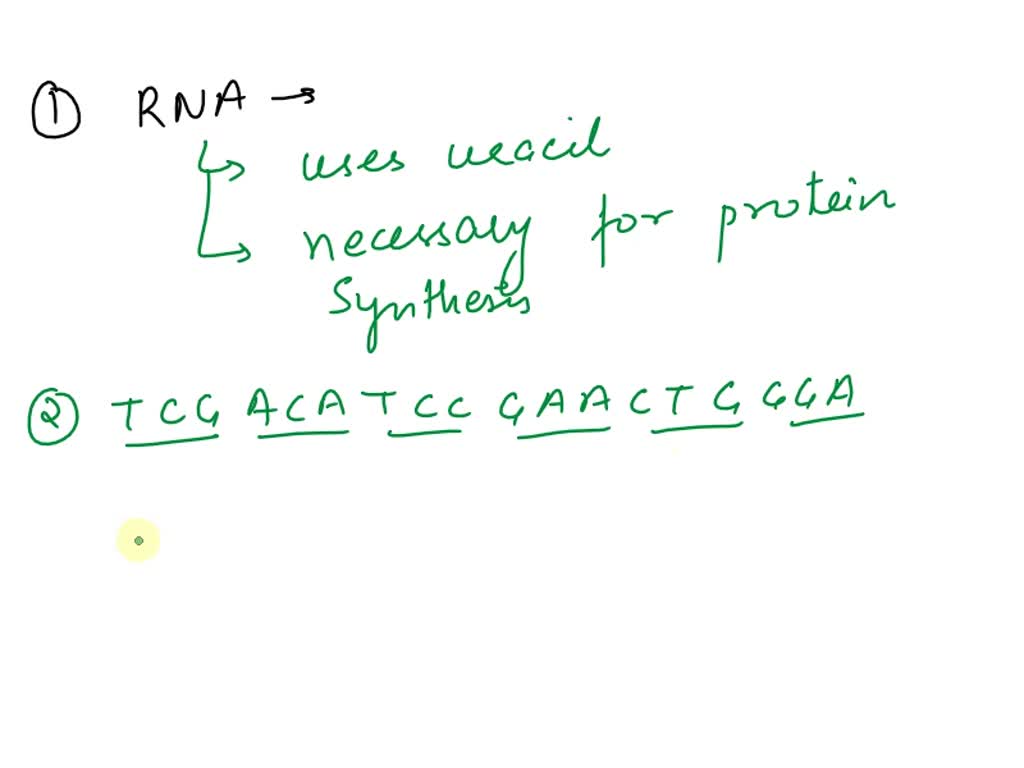 ① RNA →
↳ uses uracil
↳ necessary for protein
synthesis
② TCG ACA TCC GAA CTG GGA